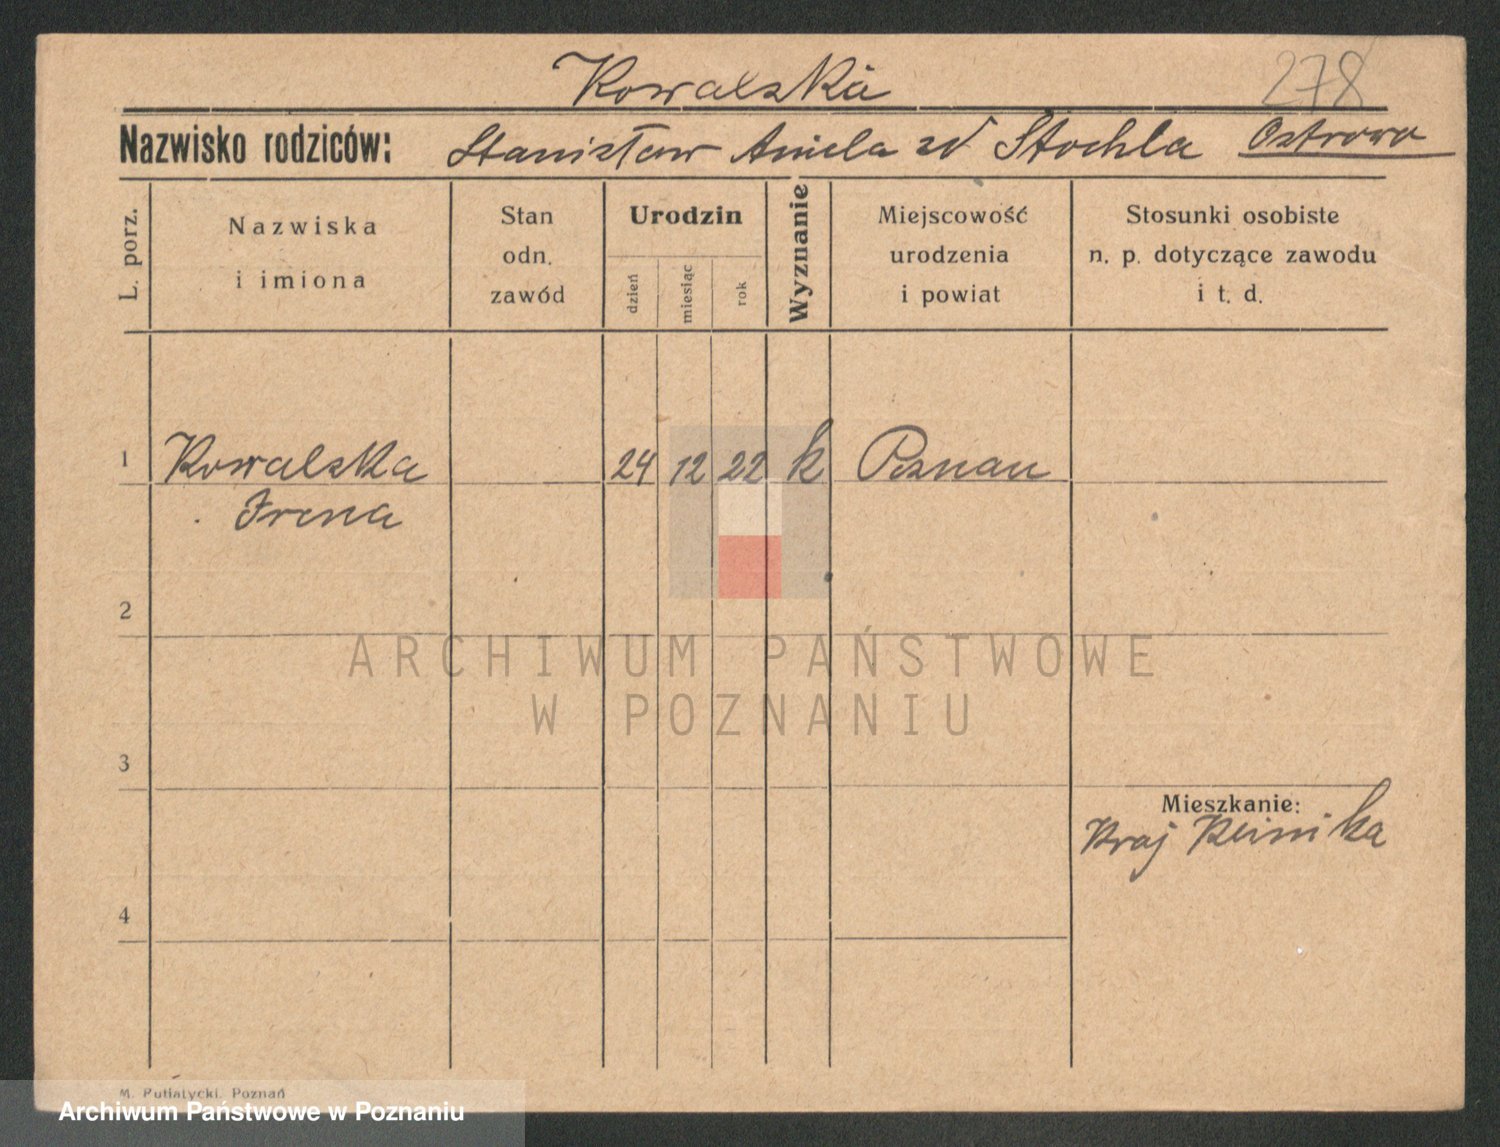 Kowalska
278
Nazwisko rodziców: Stanisław Aniela zd Stochla Ostrowo
L. porz.
Nazwiska
i imiona
Stan
odn.
zawód
Urodzin
dzień
miesiąc
rok
Wyznanie
Miejscowość
urodzenia
i powiat
Stosunki osobiste
n. p. dotyczące zawodu
i t. d.
1 Kowalska 24 12 22 k Poznan
Irena
2
ARCHIWUM PAŃSTWOWE
W POZNANIU
3
Mieszkanie:
Kraj
4
M. Putiatycki. Poznań
Archiwum Państwowe w Poznaniu